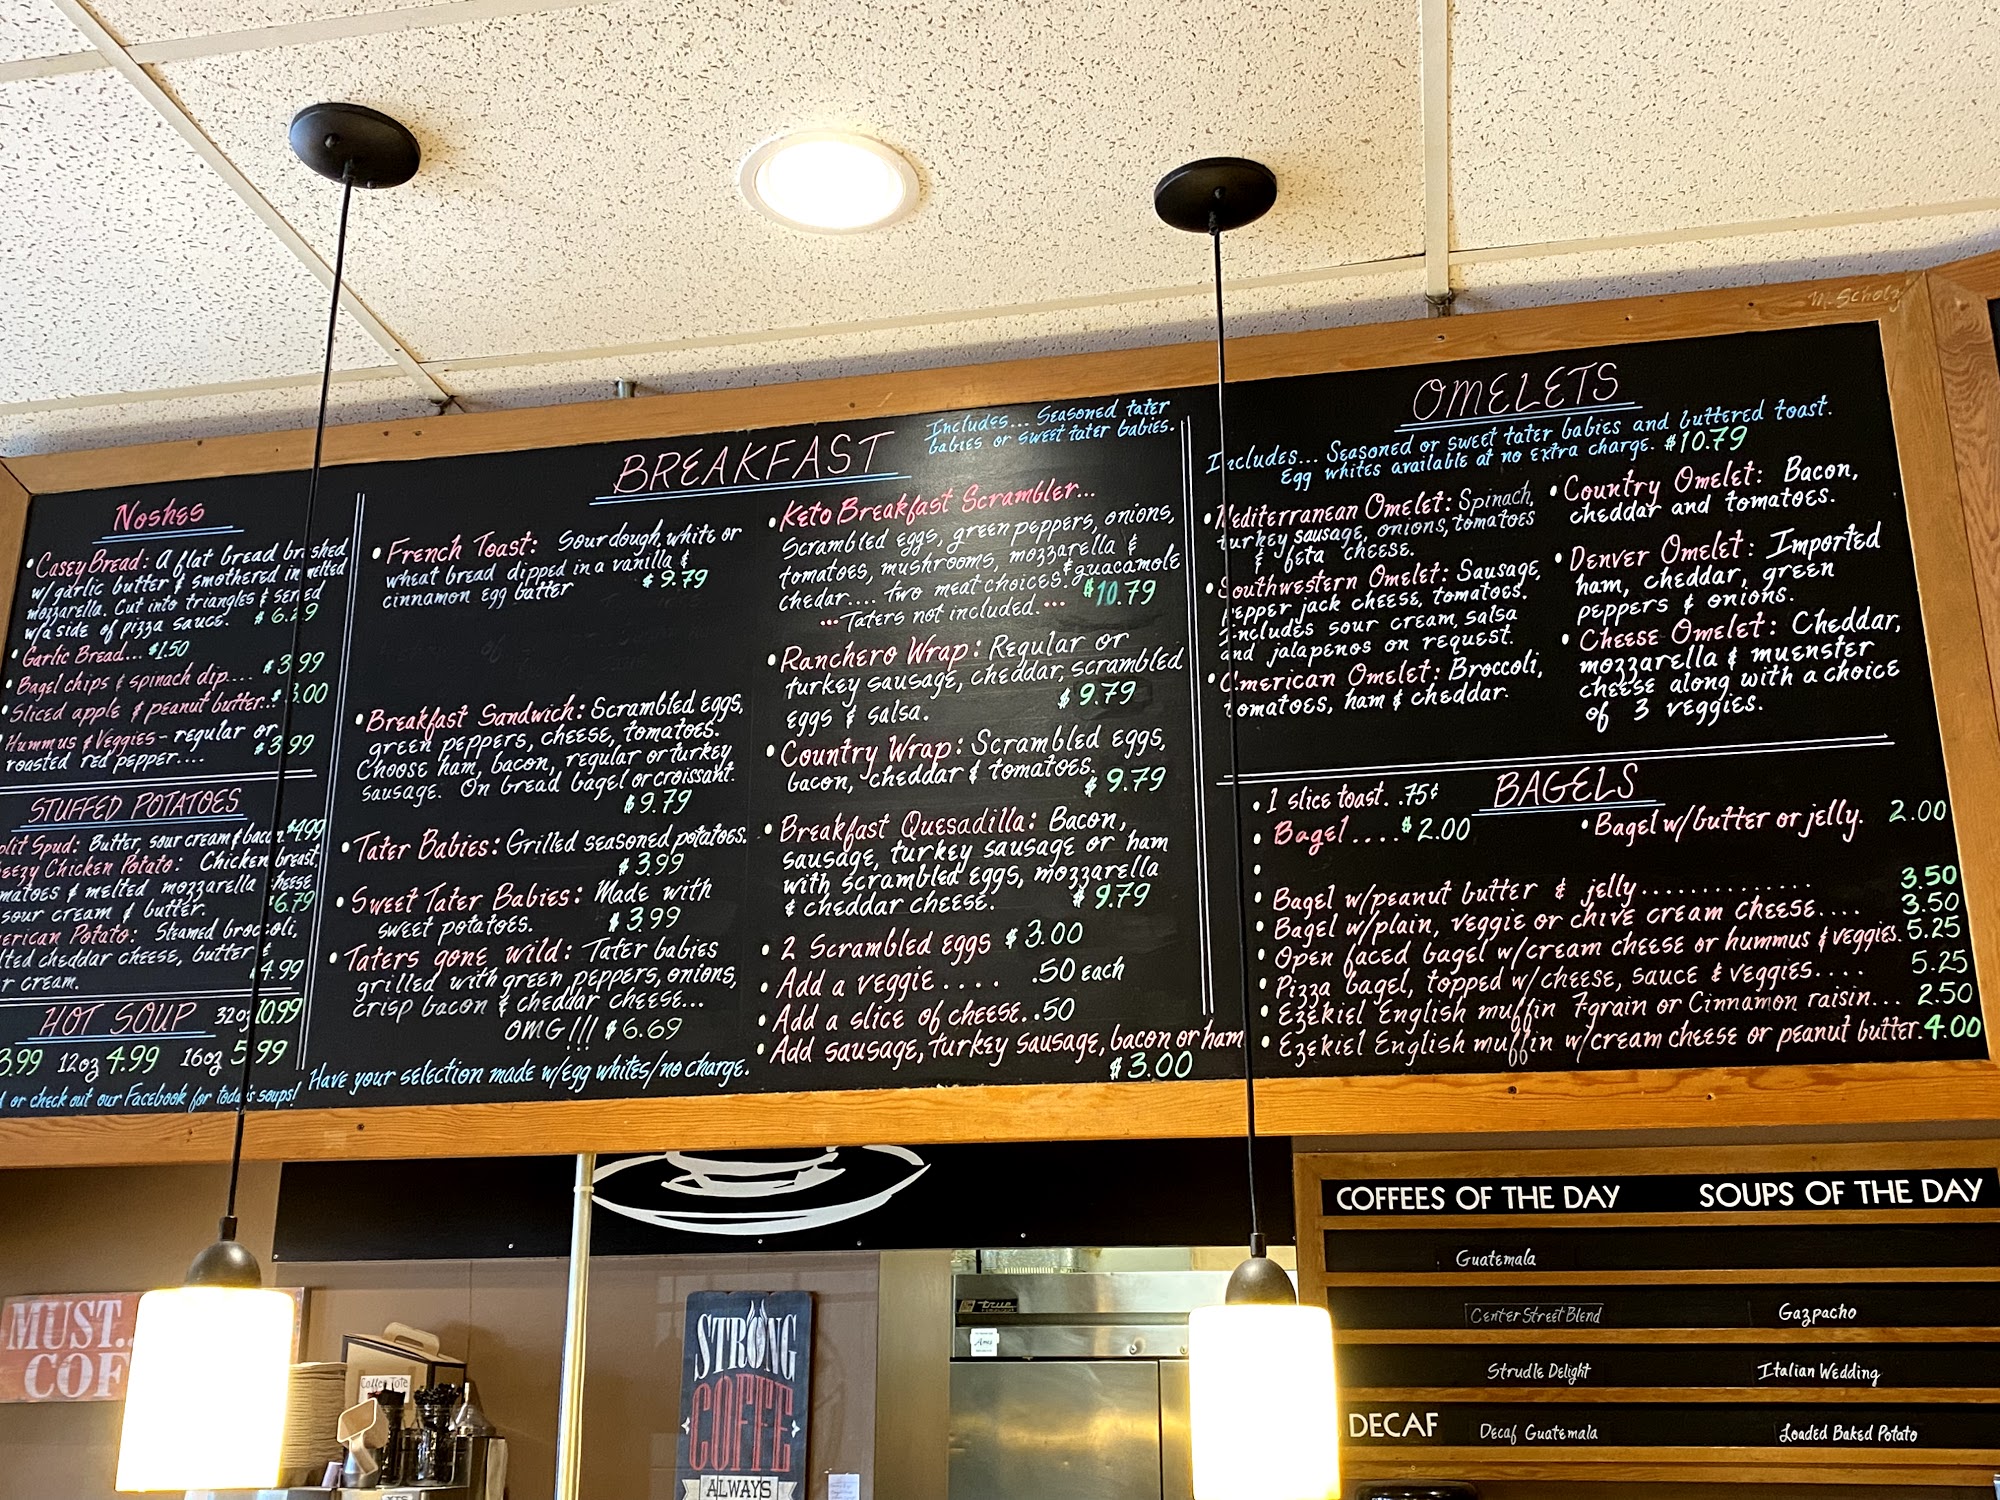 M. Scholz
Noshes
• Casey Bread: A flat bread brushed
w/garlic butter & smothered in melted
mozzarella. Cut into triangles & served
w/a side of pizza sauce. $6.29
• Garlic Bread... $1.50
• Bagel chips & spinach dip.... $3.99
• Sliced apple & peanut butter.. $3.00
• Hummus & Veggies - regular or
roasted red pepper.... $3.99
STUFFED POTATOES
Spud: Butter, sour cream & bacon. $4.99
Chicken Potato: Chicken breast,
& melted mozzarella cheese
sour cream & butter. $6.79
Potato: Steamed broccoli,
cheddar cheese, butter &
cream. $4.99
HOT SOUP 32oz 10.99
3.99 12oz 4.99 16oz 5.99
or check out our Facebook for today's soups!
BREAKFAST
Includes... Seasoned tater
babies or sweet tater babies.
• French Toast: Sourdough, white or
wheat bread dipped in a vanilla &
cinnamon egg batter $9.79
• Breakfast Sandwich: Scrambled eggs,
green peppers, cheese, tomatoes.
Choose ham, bacon, regular or turkey
sausage. On bread bagel or croissant.
$9.79
• Tater Babies: Grilled seasoned potatoes.
$3.99
• Sweet Tater Babies: Made with
sweet potatoes. $3.99
• Taters gone wild: Tater babies
grilled with green peppers, onions,
crisp bacon & cheddar cheese...
OMG!!! $6.69
Have your selection made w/egg whites/no charge.
• Keto Breakfast Scrambler...
Scrambled eggs, green peppers, onions,
tomatoes, mushrooms, mozzarella &
chedar.... two meat choices. & guacamole
...Taters not included.... $10.79
• Ranchero Wrap: Regular or
turkey sausage, cheddar, scrambled
eggs & salsa. $9.79
• Country Wrap: Scrambled eggs,
bacon, cheddar & tomatoes.
$9.79
• Breakfast Quesadilla: Bacon,
sausage, turkey sausage or ham
with scrambled eggs, mozzarella
& cheddar cheese. $9.79
• 2 Scrambled eggs $3.00
• Add a veggie.... .50 each
• Add a slice of cheese. .50
• Add sausage, turkey sausage, bacon or ham
$3.00
OMELETS
Includes... Seasoned or sweet tater babies and buttered toast.
Egg whites available at no extra charge. $10.79
• Mediterranean Omelet: Spinach,
turkey sausage, onions, tomatoes
& feta cheese.
• Southwestern Omelet: Sausage,
pepper jack cheese, tomatoes.
Includes sour cream, salsa
and jalapenos on request.
• American Omelet: Broccoli,
tomatoes, ham & cheddar.
• Country Omelet: Bacon,
cheddar and tomatoes.
• Denver Omelet: Imported
ham, cheddar, green
peppers & onions.
• Cheese Omelet: Cheddar,
mozzarella & muenster
cheese along with a choice
of 3 veggies.
BAGELS
• 1 slice toast. .75¢
• Bagel.... $2.00
• Bagel w/butter or jelly. 2.00
•
• Bagel w/peanut butter & jelly.............. 3.50
• Bagel w/plain, veggie or chive cream cheese.... 3.50
• Open faced bagel w/cream cheese or hummus & veggies. 5.25
• Pizza bagel, topped w/cheese, sauce & veggies.... 5.25
• Ezekiel English muffin 7-grain or Cinnamon raisin... 2.50
• Ezekiel English muffin w/cream cheese or peanut butter. 4.00
COFFEES OF THE DAY
SOUPS OF THE DAY
Guatemala
Center Street Blend
Gazpacho
Strudle Delight
Italian Wedding
DECAF
Decaf Guatemala
Loaded Baked Potato
MUST..
COF
Coffee Tote
STRONG
COFFE
ALWAYS
true